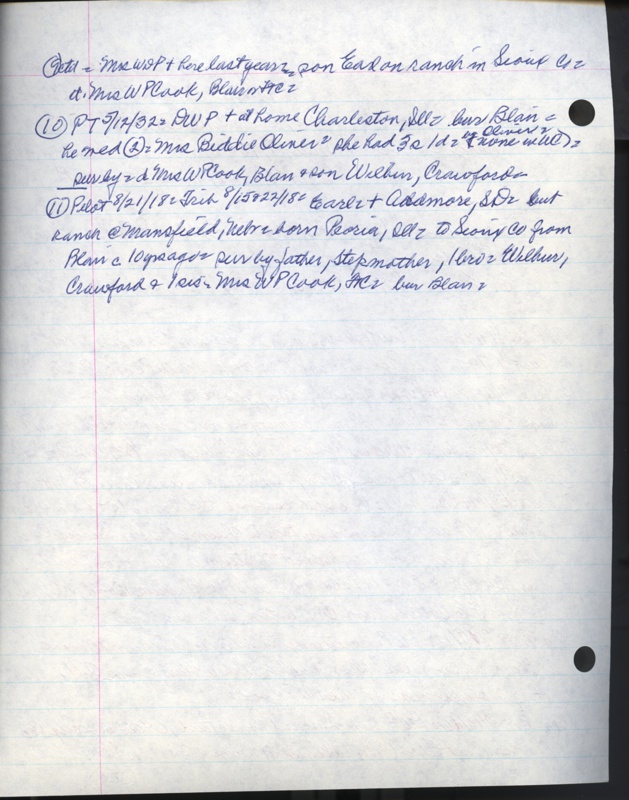 ⑨ctd = Mrs WDP + here last year = son Earl on ranch in Sioux Co =
d. Mrs W P Cook, Blair + FC =
⑩ PT 5/12/32 = DWP + at home Charleston, Ill = bur Blair =
he med ② = Mrs Biddie Oliver = she had 3 s 1 d = (= Oliver = none in WC) =
sur by = d Mrs W P Cook, Blair + son Wilbur, Crawford =
⑪ Pilot 8/21/18 = Trib 8/15 & 22/18 = Earl = + Ardmore, SD = but
ranch @ Mansfield, Nebr = born Peoria, Ill = to Sioux Co from
Blair c 10 yrs ago = sur by father, stepmother, 1 bro = Wilbur,
Crawford & 1 sis = Mrs W P Cook, FC = bur Blair =